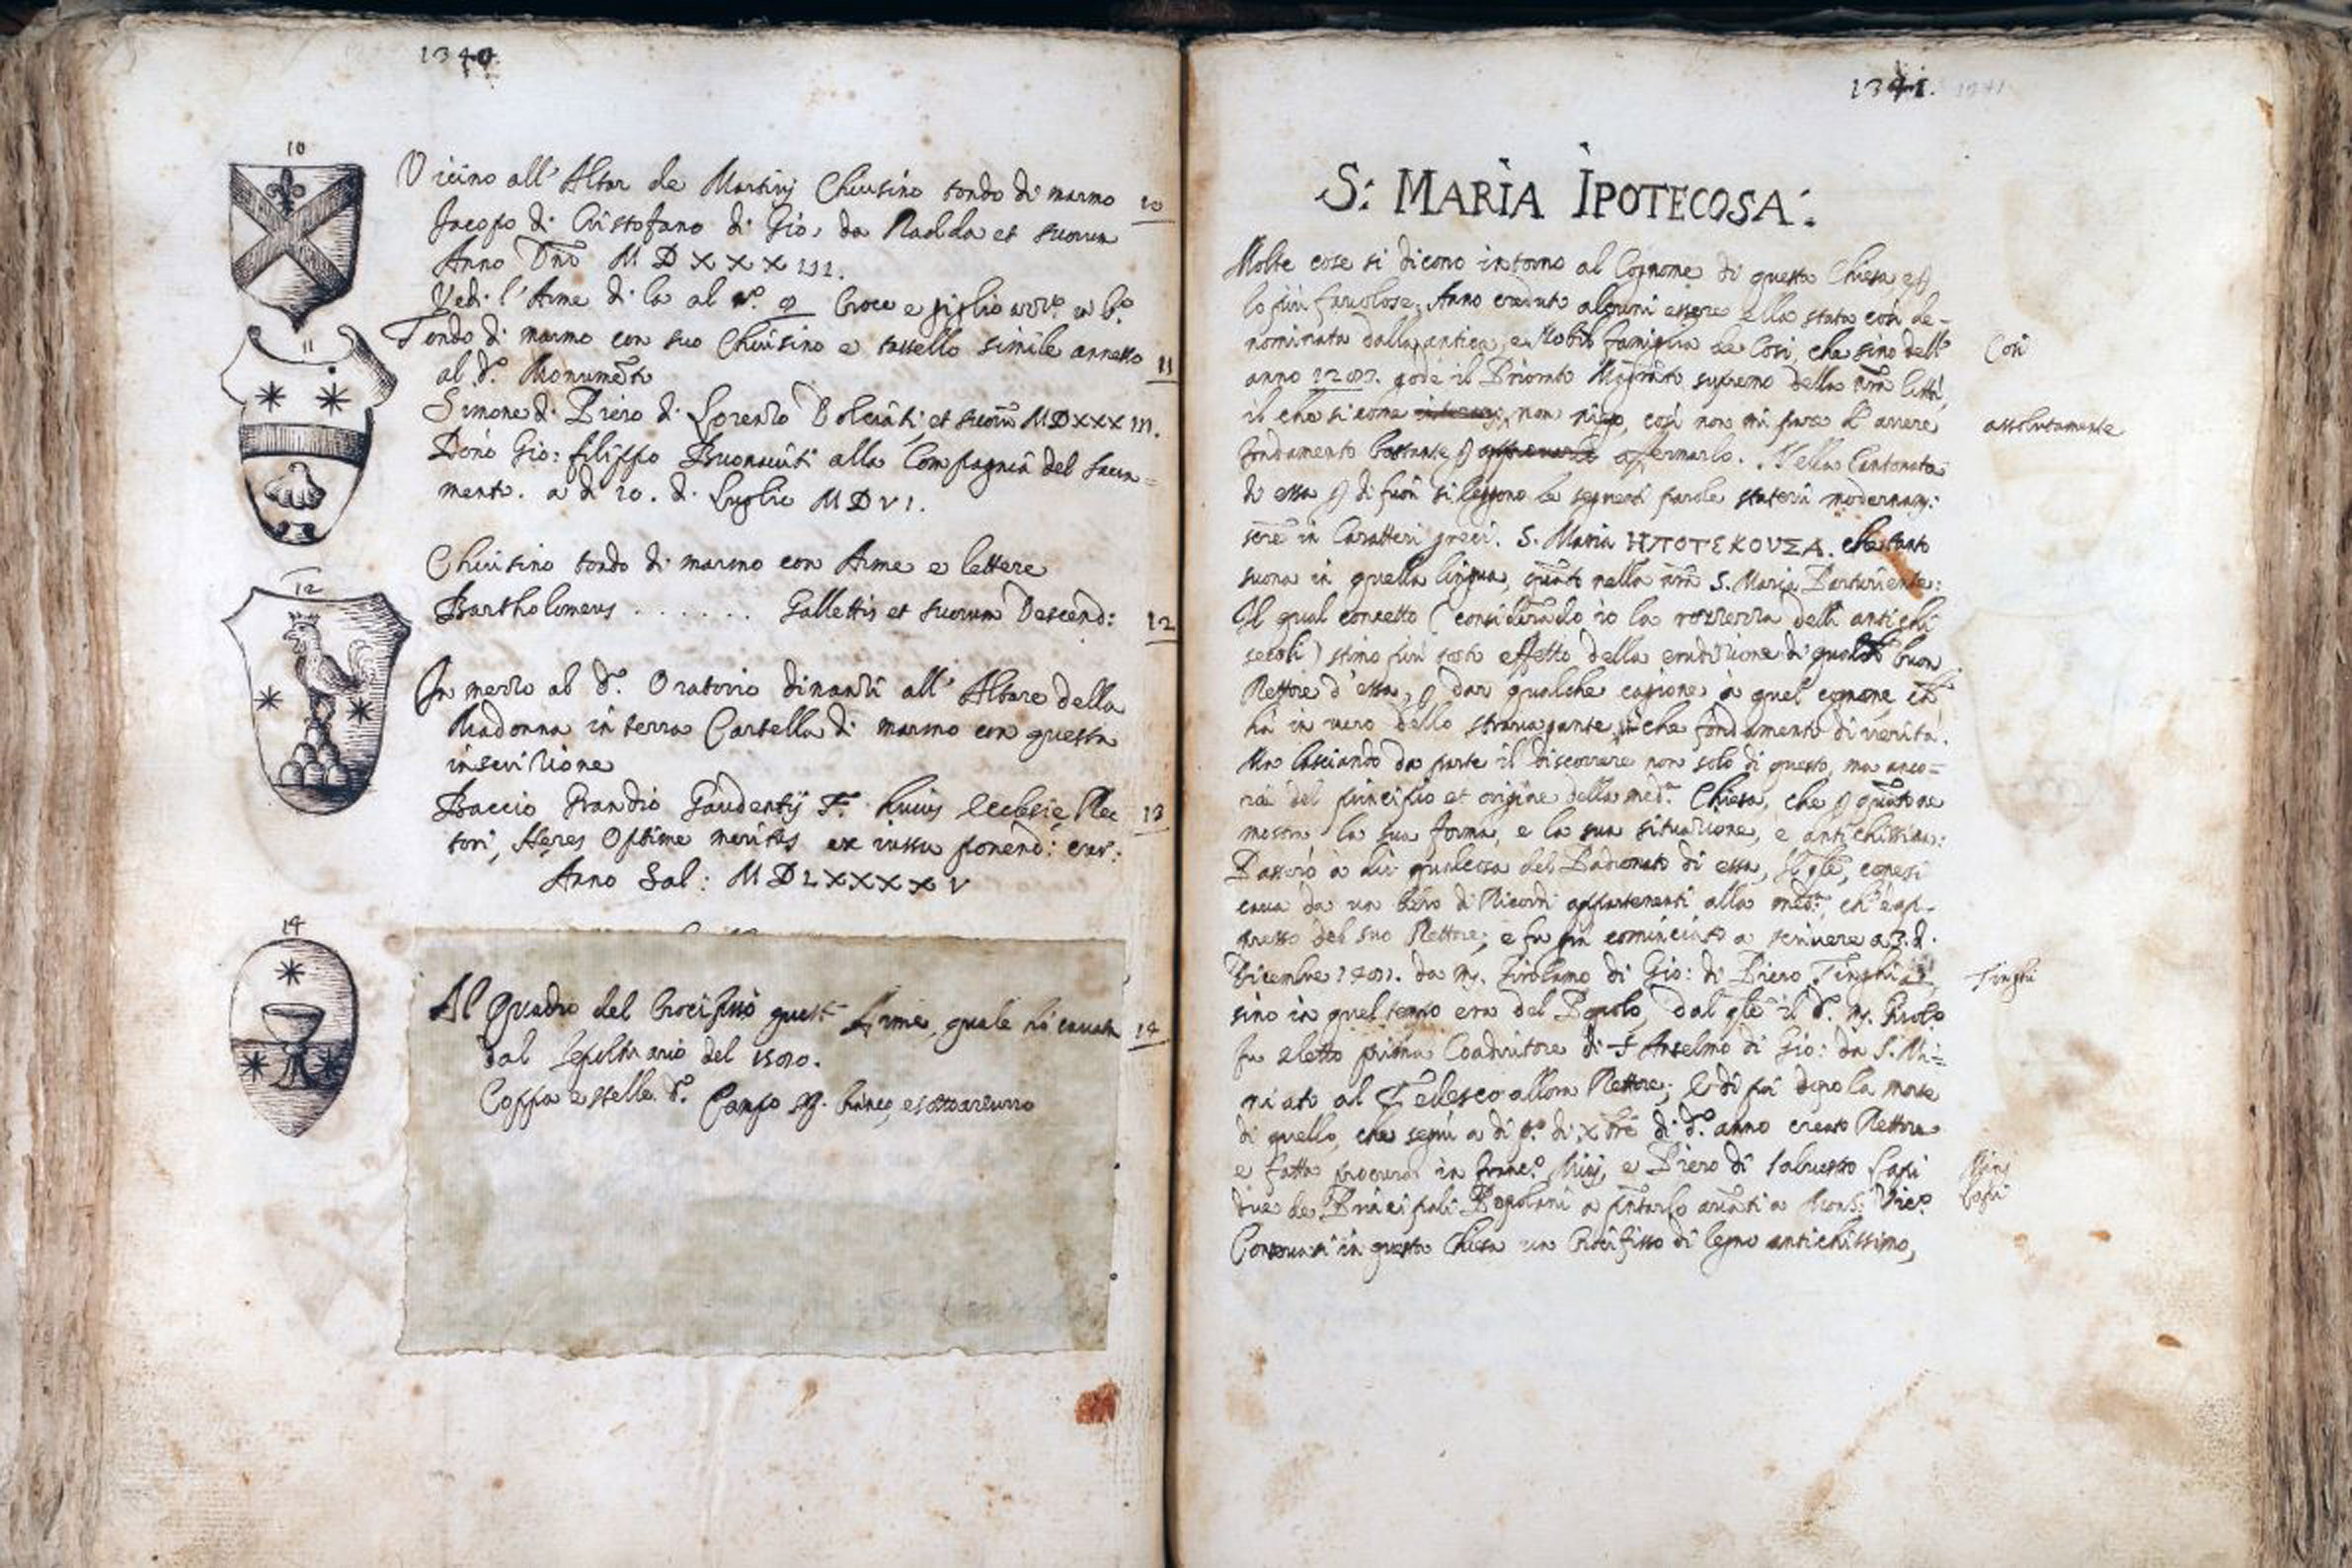 1340.
10
Vicino all' Altar de Martinj Chiusino tondo di marmo 10
Jacopo di Cristofano di Gio. da Radda et suorum
Anno Dnō M D X X X III.
Vedi l'Arme di la al n.° 9 Croce e giglio
11
Tondo di marmo con suo Chiusino e tassello simile annesso 11
al d.° Monumēto
Simone di Piero di Lorenzo et suorū MDXXXIII.
Donò Gio: filippo Buonaiuti alla Compagnia del Sacra=
mento. a di 10. di Luglio M D V I.
12
Chiusino tondo di marmo con Arme e lettere
Bartholomeus . . . . . . Gallettis et suorum Descend: 12
In mezzo al d.° Oratorio dinanzi all' Altare della
Madonna in terra Cartella di marmo con questa
inscrizione
Baccio Prandio Gaudentij F. huius Ecclesie Rec 13
tori, Heres Optime meritus ex iussu ponend: cur:
Anno Sal: M D L X X X X V
14
Al Quadro del Crocifisso quest' Arme, quale hò cavata 14
dal Sepoltuario del
Coppa e stelle d.° Campo sop. bianco, e sotto azzurro
1341. 1341
S: MARIA IPOTECOSA:
Molte cose si dicono intorno al Cognome di questa Chiesa p
lo più favolose; Anno creduto alcuni essere ella stata così de-
nominata dalla antica, e Nobil famiglia de Cosi, che sino dell' Cosi
anno gode il Priorato Magrato supremo della nrā Città,
il che si come non niego, così non mi pare d' avere assolutamente
fondamento bastante p affermarlo. Nella Cantonata
di essa p di fuori si leggono le seguenti parole statevi modernam:
te in Caratteri greci. S. Maria ΗΠΟΤΕΚΟΥΣΑ. che tanto
suona in quella lingua, quāto nella nrā S. Maria Parturiente:
Il qual concetto (considerādo io la rozzezza delli antichi
secoli) stimo più tosto effetto della erudizione di qualche buon
Rettore d'essa, p dar qualche cagione à quel cognome, ch'
hà in vero dello stravagante, che fondamento di verità.
Ma lasciando da parte il discorrere non solo di questo, ma anco=
ra del principio et origine della med.ª Chiesa, che p quāto ne
mostra la sua forma, e la sua situazione, è antichissima:
Passerò à dir qualcosa del Padronato di essa,
cava da un libro di Ricordi appartenenti alla med:ª, ch'è ap-
presso del suo Rettore; e fu già cominciato a scrivere a 3. d.
Dicembre da M. Girolamo di Gio: di Piero Tinghi Tinghi
sino in quel tempo era del Popolo, dal qle il d.° M. Girol.°
fu eletto prima Coadiutore di F. Anselmo di Gio: da S. Mi=
niato al Tedesco allora Rettore; e di poi dopo la morte
di quello, che seguì a di p.° di Xbrē di d.° anno creato Rettore
e fatto in e Piero di Salvestro Lapi Lapi
due de Principali Popolani a avāti a Mons: Vic.°
Conservasi in questa Chiesa un Crocifisso di legno antichissimo,